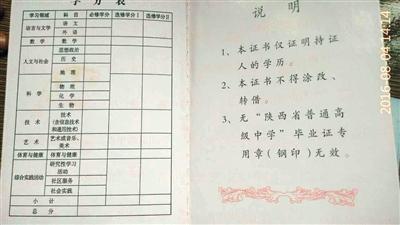 学 分 表
学习领域 科 目 必修学分 选修学分Ⅰ 选修学分Ⅱ
语言与文学 语 文
外 语
数 学 数 学
人文与社会 思想政治
历 史
地 理
科 学 物 理
化 学
生 物
技 术 技术
(含信息技术
和通用技术)
艺 术 艺术或音乐、
美术
体育与健康 体育与健康
综合实践活动 研究性学习
活动
社区服务
社会实践
小 计
总 分
说 明
1、本证书仅证明持证
人的学历。
2、本证书不得涂改、
转借。
3、无“陕西省普通高
级中学”毕业证专
用章(钢印)无效。
2016-08-04 14:14